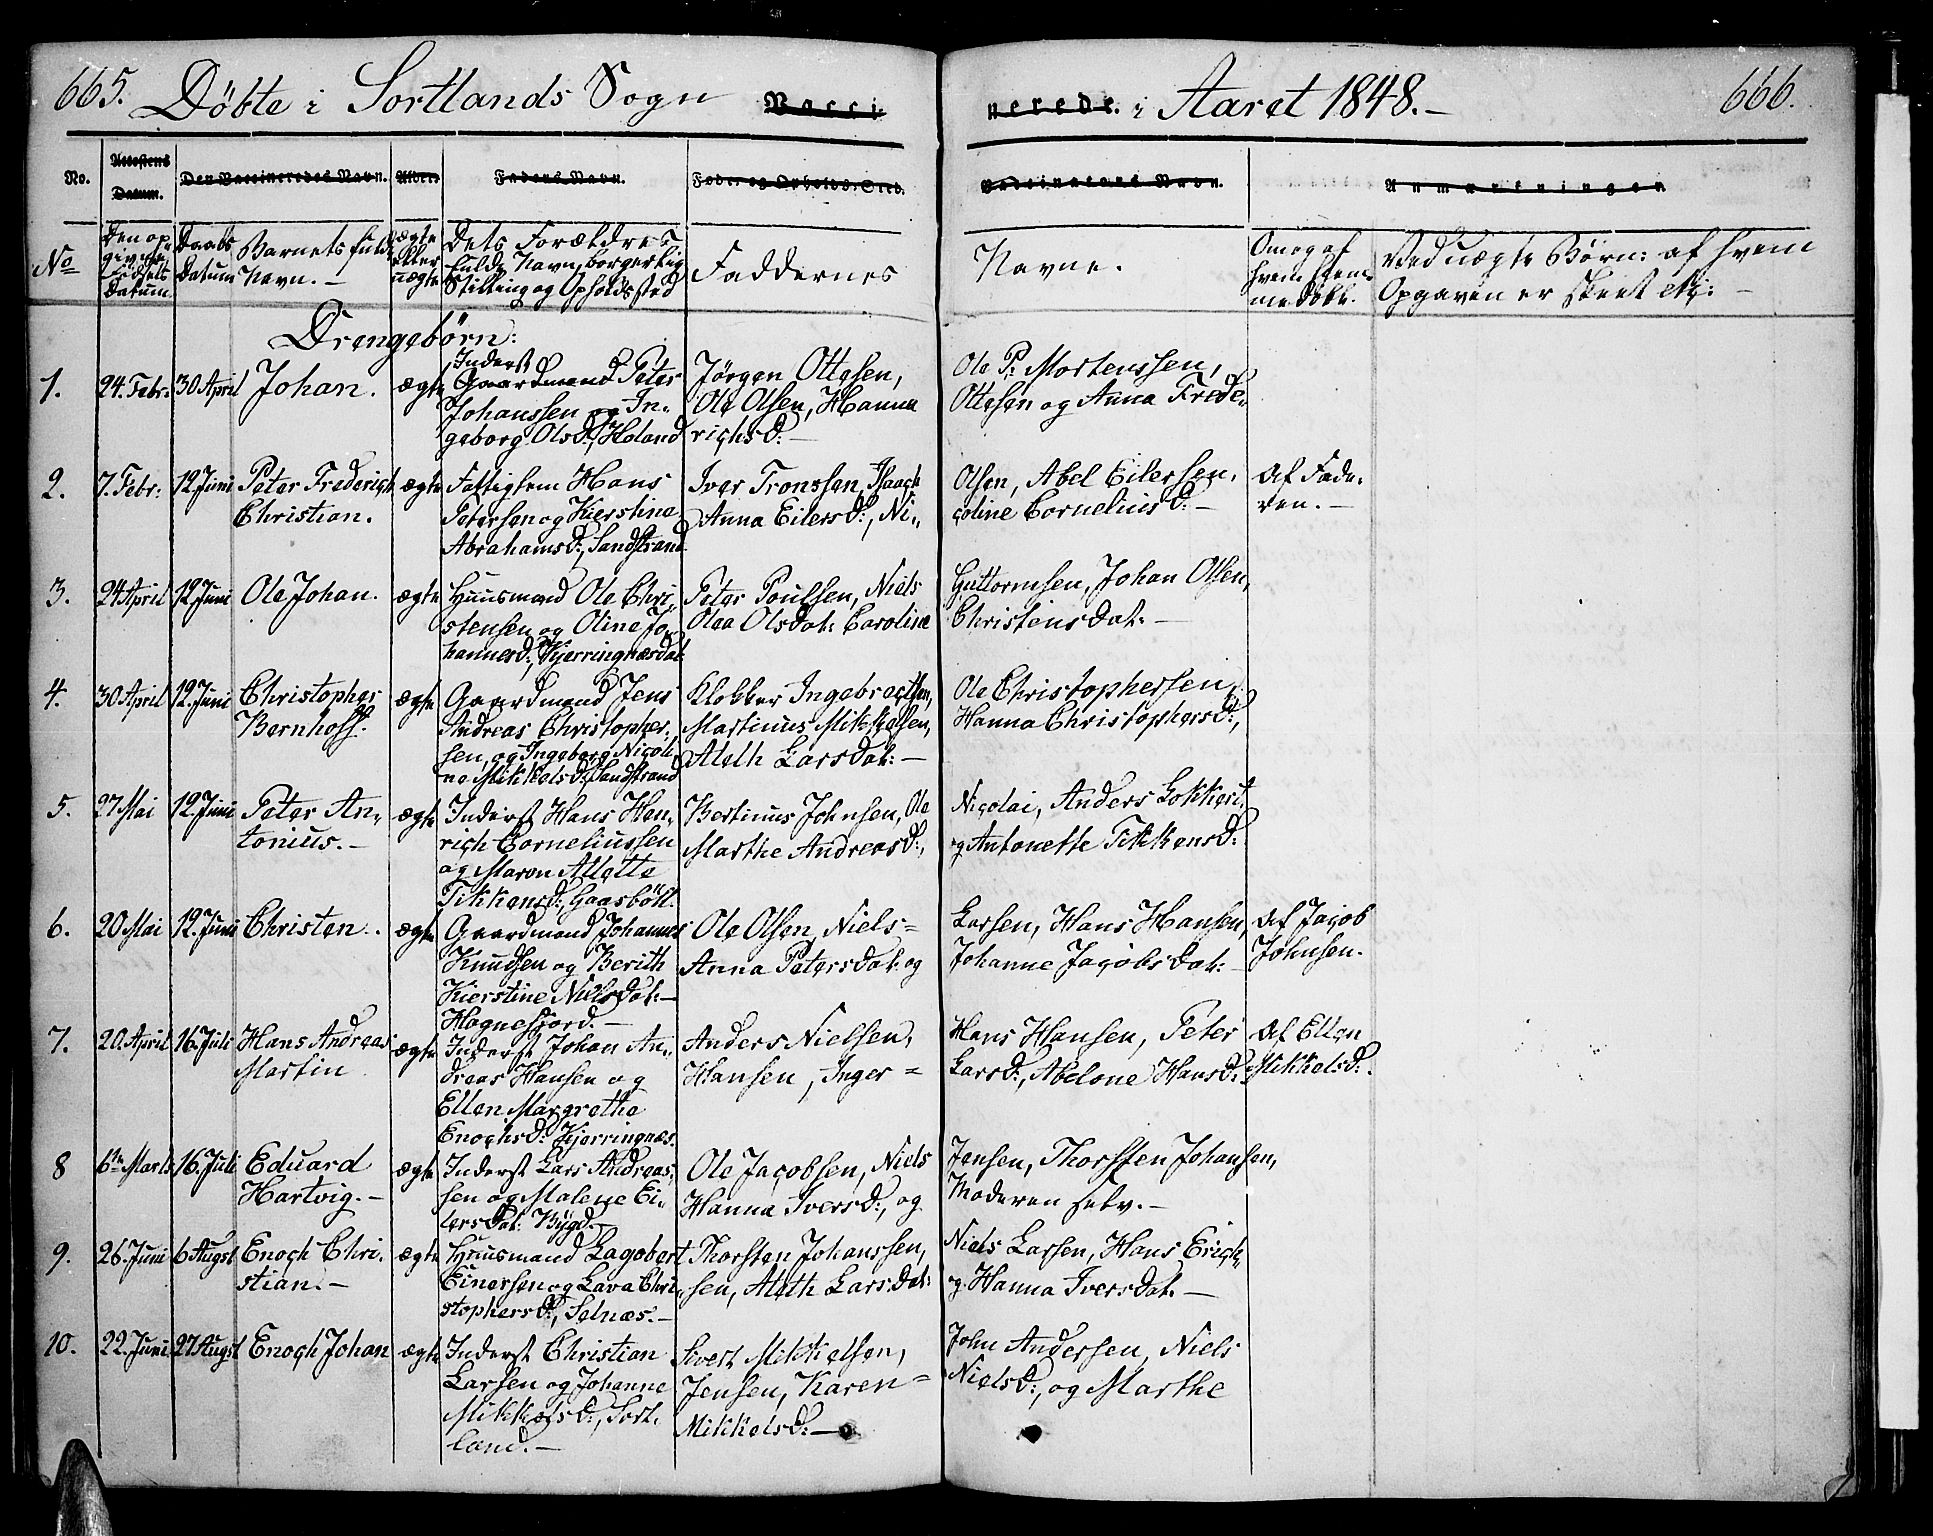 665. Döbte i Sortlands Sogn Vacci nerede. i Aaret 1848.- 666.
No. Attestens Datum. Den Vaccineredes Navn. Alder. Fadens Navn. Föde- og Opholds-Sted. Vaccinateurs Navn. Anmærkninger
No Den opgivne Födsels Datum Daabs Datum Barnets fulde Navn.- ægte eller uægte Dets Forældres fulde Navn, borgerlig Stilling og Opholdssted Faddernes Navne. Om og af hvem hjemmedöbt. Ved uægte Börn: af hvem Opgaven er skeet etc: -
Drengebörn:
1. 24. Febr: 30 April Johan. ægte Inderst
Gaardmand Peter Jörgen Ottesen, Ole P. Mortenssen,
Johanssen og In- Ole Olsen, Hanna Ottesen og Anna Frede-
geborg Olsd:, Holand richsd:-
2. 7. Febr: 12 Juni Peter Frederich ægte Fattiglem Hans Iver Tronssen, Isaach Olsen, Abel Eilerssen, Af Fade-
Christian. Petersen og Kierstine Anna Eilersd:, Ni- coline Corneliusd:- ren.-
Abrahamsd:, Sandstrand
3. 24 April 12 Juni Ole Johan. ægte Huusmand Ole Chri- Peter Poulsen, Niels Guttormsen, Johan Olsen,
stensen og Oline Jo- Olea Olsdat: Caroline Christensdat:-
hannesd:, Kjerringnæsdal
4. 30 April 12. Juni Christopher ægte Gaardmand Jens Klokker Ingebregtsen, Ole Christophersen,
Bernhoff. Andreas Christopher- Martinus Mikkelsen, Hanna Christophersd:,
sen, og Ingeborg Nicoli- Aleth Larsdat:-
ne Mikkelsd:, Sandstrand
5. 27 Mai 12 Juni Peter An- ægte Inderst Hans Hen- Bertinus Johnsen, Ole Nicolai, Anders Lokkert,
tonius.- rich Corneliussen Marthe Andreasd:, og Antonette Tikkensd:
og Maren Alette
Tikkensd:, Gaasböll.
6. 20 Mai 12. Juni Christen. ægte Gaardmand Johannes Ole Olsen, Niels= Larsen, Hans Hansen, Af Jacob
Knudsen og Berith Anna Petersdat: og Johanne Jacobsdat:- Johnsen.
Kierstine Nielsdat:-
Hognefjord.-
7. 20. April 16. Juli Hans Andreas ægte Inderst Johan An- Anders Nielsen, Hans Hansen, Peter Af Ellen
Martin dreas Hansen og Hansen, Inger= Larsd:, Abelone Hansd: Mikkelsd:.
Ellen Margrethe
Enochsd: Kjerringnæs.
8 6te Marts 16. Juli Eduard ægte Inderst Lars Andreas- Ole Jacobsen, Niels Jensen, Thorsten Johansen,
Hartvig.- sen og Malene Ei- Hanna Iversd:, og Moderen selv.-
lersdat: Bÿgd.-
9. 26. Juni 6 Augst Enoch Chri- ægte Huusmand Lagobert Thorsten Johanssen, Niels Larsen, Hans Erich-
stian.- Einersen og Lava Chri- sen, Aleth Larsdat: og Hanna Iversdat:-
stophersd:, Selnæs.-
10. 22. Juni 27 Augst Enoch Johan ægte Inderst Christian Sivert Mikkelsen, John Andersen, Niels
Larsen og Johanne Jensen, Karen= Nielsd:, og Marthe
Mikkelsd:, Sort- Mikkelsd:-
land.-